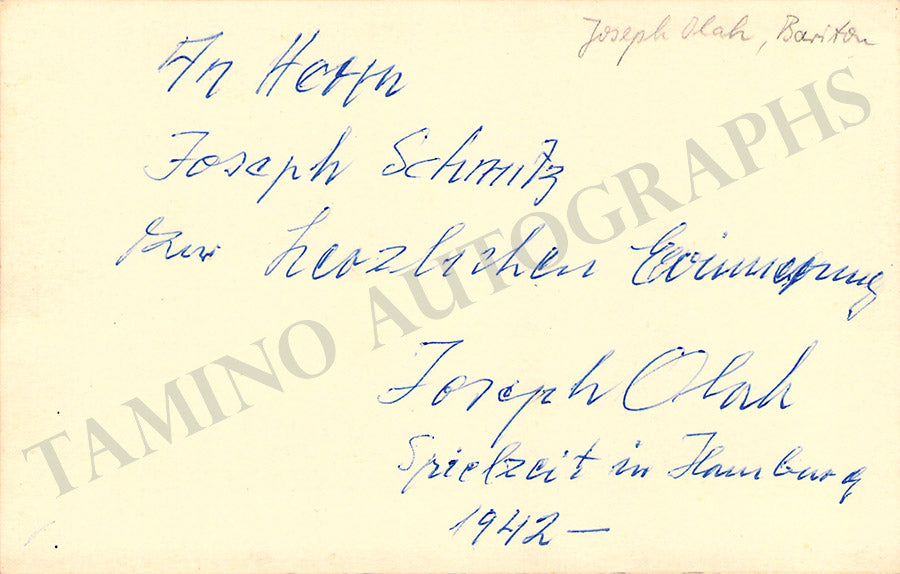 Joseph Olah, Bariton
An Herrn
Joseph Schmitz
zur herzlichen Erinnerung
Joseph Olah
Spielzeit in Hamburg
1942 —
TAMINO AUTOGRAPHS